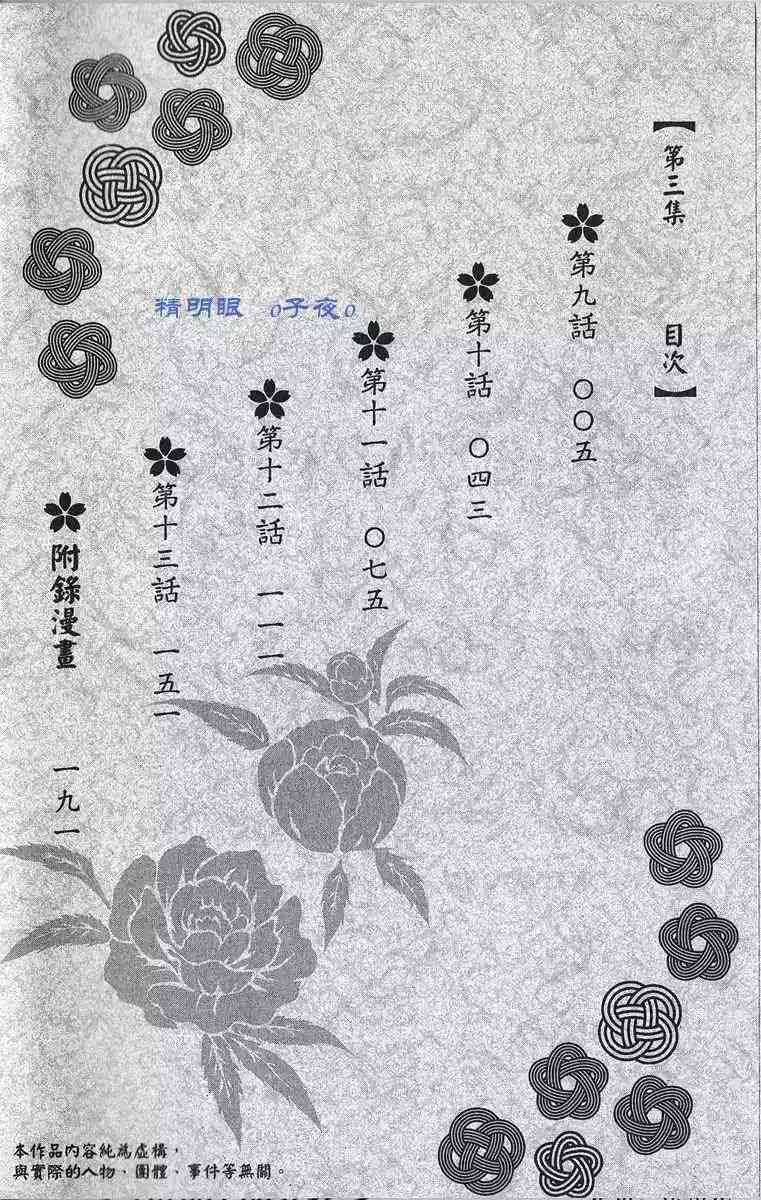 【第三集 目次】
第九話 〇〇五
第十話 〇四三
第十一話 〇七五
第十二話 一一一
第十三話 一五一
附錄漫畫 一九一
精明眼 o子夜o
本作品內容純為虛構，
與實際的人物、團體、事件等無關。